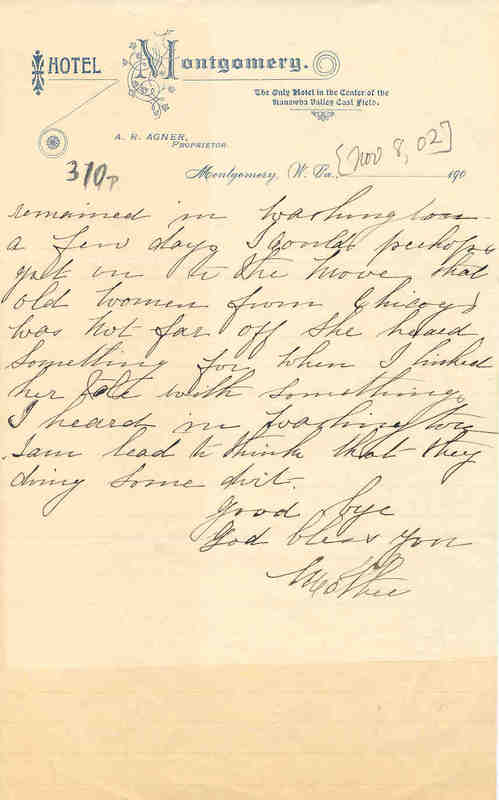 HOTEL Montgomery.
The Only Hotel in the Center of the
Kanawha Valley Coal Field.
A. R. AGNER,
PROPRIETOR.
310
Montgomery, W. Va., [Nov 8, 02] 190
remained in Washington
a few days I could perhaps
got on to the move that
old women from Chicago
was not far off she heard
something for when I linked
her with something
I heard in Washington
I am lead to think that they
doing some dirt.
good bye
God bless you
Mother